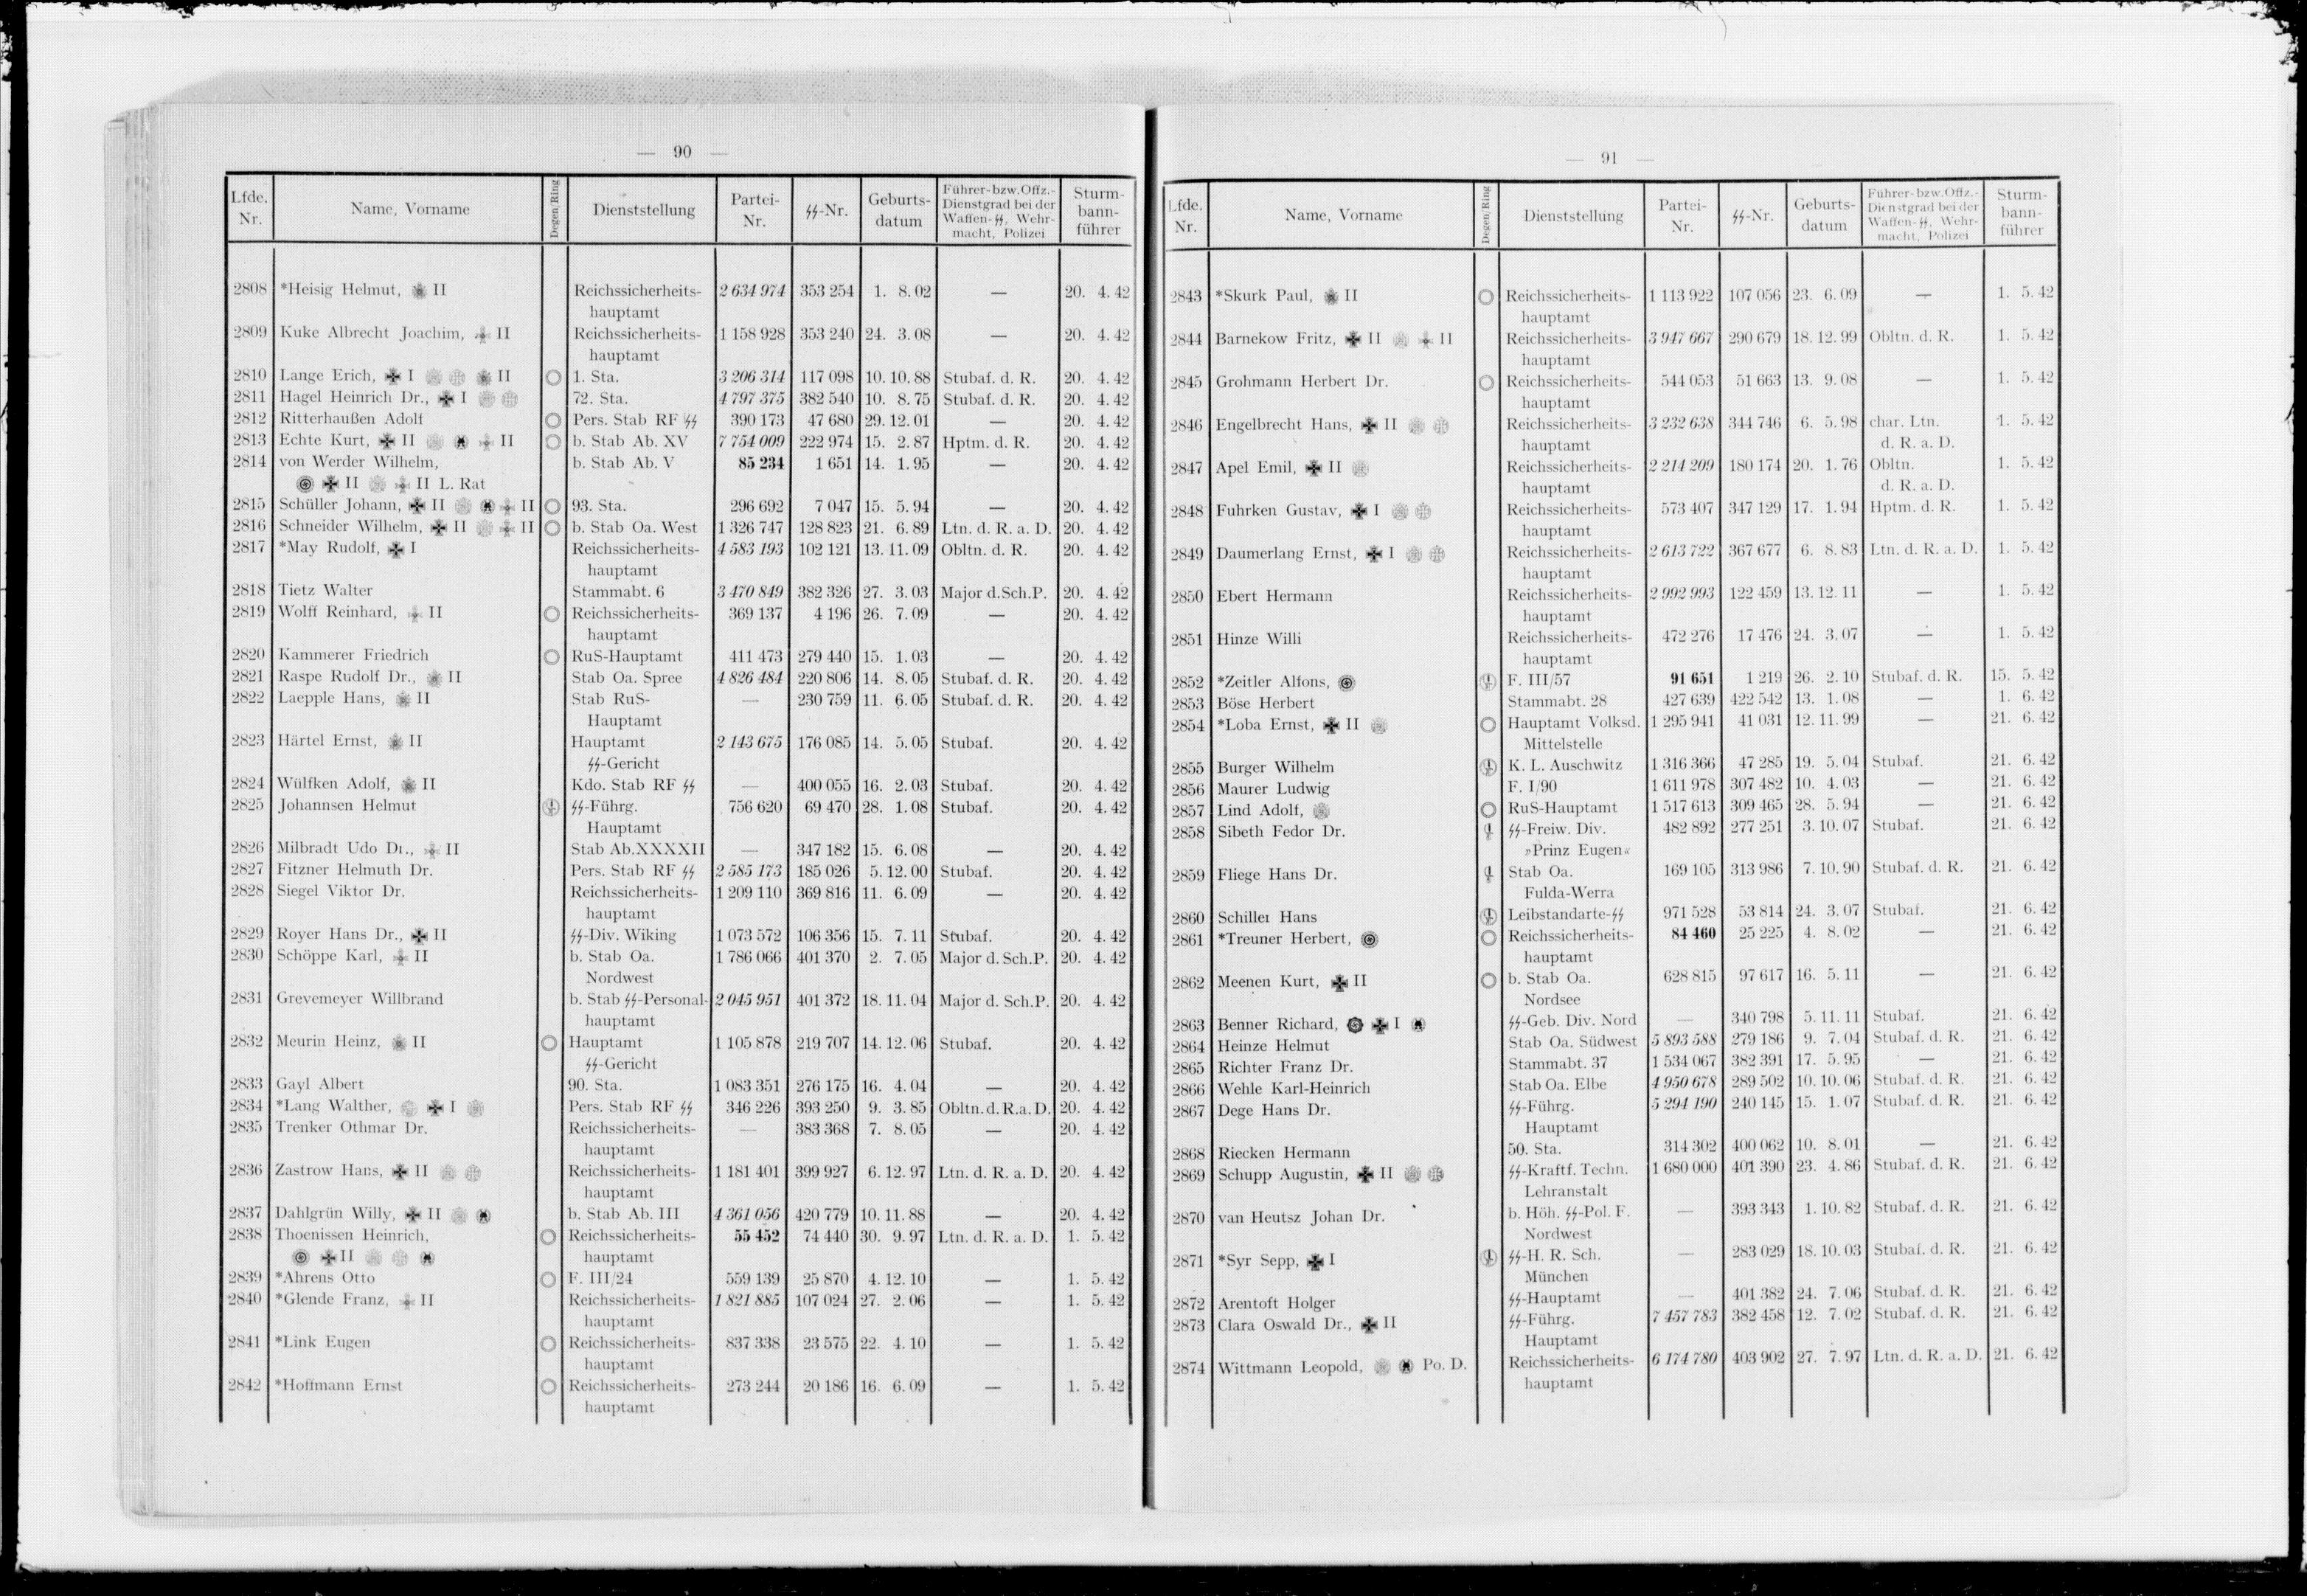 — 90 —
Lfde. Nr. | Name, Vorname | Degen/Ring | Dienststellung | Partei-Nr. | ᛋᛋ-Nr. | Geburts-datum | Führer- bzw. Offz.-Dienstgrad bei der Waffen-ᛋᛋ, Wehr-macht, Polizei | Sturm-bann-führer
2808 *Heisig Helmut, II Reichssicherheits- 2 634 974 353 254 1. 8. 02 — 20. 4. 42
hauptamt
2809 Kuke Albrecht Joachim, II Reichssicherheits- 1 158 928 353 240 24. 3. 08 — 20. 4. 42
hauptamt
2810 Lange Erich, ✠ I II 1. Sta. 3 206 314 117 098 10. 10. 88 Stubaf. d. R. 20. 4. 42
2811 Hagel Heinrich Dr., ✠ I 72. Sta. 4 797 375 382 540 10. 8. 75 Stubaf. d. R. 20. 4. 42
2812 Ritterhaußen Adolf Pers. Stab RF ᛋᛋ 390 173 47 680 29. 12. 01 — 20. 4. 42
2813 Echte Kurt, ✠ II II b. Stab Ab. XV 7 754 009 222 974 15. 2. 87 Hptm. d. R. 20. 4. 42
2814 von Werder Wilhelm, b. Stab Ab. V 85 234 1 651 14. 1. 95 — 20. 4. 42
✠ II II L. Rat
2815 Schüller Johann, ✠ II II 93. Sta. 296 692 7 047 15. 5. 94 — 20. 4. 42
2816 Schneider Wilhelm, ✠ II II b. Stab Oa. West 1 326 747 128 823 21. 6. 89 Ltn. d. R. a. D. 20. 4. 42
2817 *May Rudolf, ✠ I Reichssicherheits- 4 583 193 102 121 13. 11. 09 Obltn. d. R. 20. 4. 42
hauptamt
2818 Tietz Walter Stammabt. 6 3 470 849 382 326 27. 3. 03 Major d.Sch.P. 20. 4. 42
2819 Wolff Reinhard, II Reichssicherheits- 369 137 4 196 26. 7. 09 — 20. 4. 42
hauptamt
2820 Kammerer Friedrich RuS-Hauptamt 411 473 279 440 15. 1. 03 — 20. 4. 42
2821 Raspe Rudolf Dr., II Stab Oa. Spree 4 826 484 220 806 14. 8. 05 Stubaf. d. R. 20. 4. 42
2822 Laepple Hans, II Stab RuS- — 230 759 11. 6. 05 Stubaf. d. R. 20. 4. 42
Hauptamt
2823 Härtel Ernst, II Hauptamt 2 143 675 176 085 14. 5. 05 Stubaf. 20. 4. 42
ᛋᛋ-Gericht
2824 Wülfken Adolf, II Kdo. Stab RF ᛋᛋ — 400 055 16. 2. 03 Stubaf. 20. 4. 42
2825 Johannsen Helmut ᛋᛋ-Führg. 756 620 69 470 28. 1. 08 Stubaf. 20. 4. 42
Hauptamt
2826 Milbradt Udo Dr., II Stab Ab.XXXXII — 347 182 15. 6. 08 — 20. 4. 42
2827 Fitzner Helmuth Dr. Pers. Stab RF ᛋᛋ 2 585 173 185 026 5. 12. 00 Stubaf. 20. 4. 42
2828 Siegel Viktor Dr. Reichssicherheits- 1 209 110 369 816 11. 6. 09 — 20. 4. 42
hauptamt
2829 Royer Hans Dr., ✠ II ᛋᛋ-Div. Wiking 1 073 572 106 356 15. 7. 11 Stubaf. 20. 4. 42
2830 Schöppe Karl, II b. Stab Oa. 1 786 066 401 370 2. 7. 05 Major d. Sch.P. 20. 4. 42
Nordwest
2831 Grevemeyer Willbrand b. Stab ᛋᛋ-Personal- 2 045 951 401 372 18. 11. 04 Major d. Sch.P. 20. 4. 42
hauptamt
2832 Meurin Heinz, II Hauptamt 1 105 878 219 707 14. 12. 06 Stubaf. 20. 4. 42
ᛋᛋ-Gericht
2833 Gayl Albert 90. Sta. 1 083 351 276 175 16. 4. 04 — 20. 4. 42
2834 *Lang Walther, ✠ I Pers. Stab RF ᛋᛋ 346 226 393 250 9. 3. 85 Obltn. d. R.a. D. 20. 4. 42
2835 Trenker Othmar Dr. Reichssicherheits- — 383 368 7. 8. 05 — 20. 4. 42
hauptamt
2836 Zastrow Hans, ✠ II Reichssicherheits- 1 181 401 399 927 6. 12. 97 Ltn. d. R. a. D. 20. 4. 42
hauptamt
2837 Dahlgrün Willy, ✠ II b. Stab Ab. III 4 361 056 420 779 10. 11. 88 — 20. 4. 42
2838 Thoenissen Heinrich, Reichssicherheits- 55 452 74 440 30. 9. 97 Ltn. d. R. a. D. 1. 5. 42
✠ II hauptamt
2839 *Ahrens Otto F. III/24 559 139 25 870 4. 12. 10 — 1. 5. 42
2840 *Glende Franz, II Reichssicherheits- 1 821 885 107 024 27. 2. 06 — 1. 5. 42
hauptamt
2841 *Link Eugen Reichssicherheits- 837 338 23 575 22. 4. 10 — 1. 5. 42
hauptamt
2842 *Hoffmann Ernst Reichssicherheits- 273 244 20 186 16. 6. 09 — 1. 5. 42
hauptamt
— 91 —
Lfde. Nr. | Name, Vorname | Degen/Ring | Dienststellung | Partei-Nr. | ᛋᛋ-Nr. | Geburts-datum | Führer- bzw. Offz.-Dienstgrad bei der Waffen-ᛋᛋ, Wehr-macht, Polizei | Sturm-bann-führer
2843 *Skurk Paul, II Reichssicherheits- 1 113 922 107 056 23. 6. 09 — 1. 5. 42
hauptamt
2844 Barnekow Fritz, ✠ II II Reichssicherheits- 3 947 667 290 679 18. 12. 99 Obltn. d. R. 1. 5. 42
hauptamt
2845 Grohmann Herbert Dr. Reichssicherheits- 544 053 51 663 13. 9. 08 — 1. 5. 42
hauptamt
2846 Engelbrecht Hans, ✠ II Reichssicherheits- 3 232 638 344 746 6. 5. 98 char. Ltn. 1. 5. 42
hauptamt d. R. a. D.
2847 Apel Emil, ✠ II Reichssicherheits- 2 214 209 180 174 20. 1. 76 Obltn. 1. 5. 42
hauptamt d. R. a. D.
2848 Fuhrken Gustav, ✠ I Reichssicherheits- 573 407 347 129 17. 1. 94 Hptm. d. R. 1. 5. 42
hauptamt
2849 Daumerlang Ernst, ✠ I Reichssicherheits- 2 613 722 367 677 6. 8. 83 Ltn. d. R. a. D. 1. 5. 42
hauptamt
2850 Ebert Hermann Reichssicherheits- 2 992 993 122 459 13. 12. 11 — 1. 5. 42
hauptamt
2851 Hinze Willi Reichssicherheits- 472 276 17 476 24. 3. 07 — 1. 5. 42
hauptamt
2852 *Zeitler Alfons, F. III/57 91 651 1 219 26. 2. 10 Stubaf. d. R. 15. 5. 42
2853 Böse Herbert Stammabt. 28 427 639 422 542 13. 1. 08 — 1. 6. 42
2854 *Loba Ernst, ✠ II Hauptamt Volksd. 1 295 941 41 031 12. 11. 99 — 21. 6. 42
Mittelstelle
2855 Burger Wilhelm K. L. Auschwitz 1 316 366 47 285 19. 5. 04 Stubaf. 21. 6. 42
2856 Maurer Ludwig F. I/90 1 611 978 307 482 10. 4. 03 — 21. 6. 42
2857 Lind Adolf, RuS-Hauptamt 1 517 613 309 465 28. 5. 94 — 21. 6. 42
2858 Sibeth Fedor Dr. ᛋᛋ-Freiw. Div. 482 892 277 251 3. 10. 07 Stubaf. 21. 6. 42
»Prinz Eugen«
2859 Fliege Hans Dr. Stab Oa. 169 105 313 986 7. 10. 90 Stubaf. d. R. 21. 6. 42
Fulda-Werra
2860 Schiller Hans Leibstandarte-ᛋᛋ 971 528 53 814 24. 3. 07 Stubaf. 21. 6. 42
2861 *Treuner Herbert, Reichssicherheits- 84 460 25 225 4. 8. 02 — 21. 6. 42
hauptamt
2862 Meenen Kurt, ✠ II b. Stab Oa. 628 815 97 617 16. 5. 11 — 21. 6. 42
Nordsee
2863 Benner Richard, ✠ I ᛋᛋ-Geb. Div. Nord — 340 798 5. 11. 11 Stubaf. 21. 6. 42
2864 Heinze Helmut Stab Oa. Südwest 5 893 588 279 186 9. 7. 04 Stubaf. d. R. 21. 6. 42
2865 Richter Franz Dr. Stammabt. 37 1 534 067 382 391 17. 5. 95 — 21. 6. 42
2866 Wehle Karl-Heinrich Stab Oa. Elbe 4 950 678 289 502 10. 10. 06 Stubaf. d. R. 21. 6. 42
2867 Dege Hans Dr. ᛋᛋ-Führg. 5 294 190 240 145 15. 1. 07 Stubaf. d. R. 21. 6. 42
Hauptamt
2868 Riecken Hermann 50. Sta. 314 302 400 062 10. 8. 01 — 21. 6. 42
2869 Schupp Augustin, ✠ II ᛋᛋ-Kraftf. Techn. 1 680 000 401 390 23. 4. 86 Stubaf. d. R. 21. 6. 42
Lehranstalt
2870 van Heutsz Johan Dr. b. Höh. ᛋᛋ-Pol. F. — 393 343 1. 10. 82 Stubaf. d. R. 21. 6. 42
Nordwest
2871 *Syr Sepp, ✠ I ᛋᛋ-H. R. Sch. — 283 029 18. 10. 03 Stubaf. d. R. 21. 6. 42
München
2872 Arentoft Holger ᛋᛋ-Hauptamt — 401 382 24. 7. 06 Stubaf. d. R. 21. 6. 42
2873 Clara Oswald Dr., ✠ II ᛋᛋ-Führg. 7 457 783 382 458 12. 7. 02 Stubaf. d. R. 21. 6. 42
Hauptamt
2874 Wittmann Leopold, Po. D. Reichssicherheits- 6 174 780 403 902 27. 7. 97 Ltn. d. R. a. D. 21. 6. 42
hauptamt